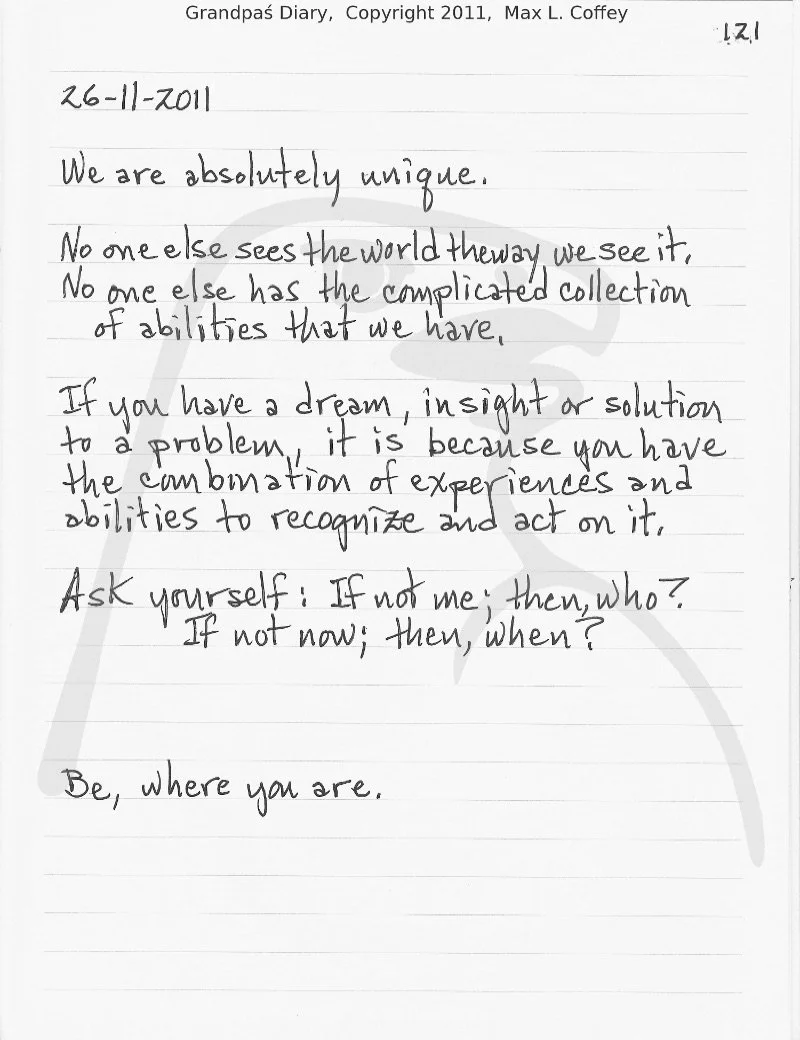 Grandpaś Diary, Copyright 2011, Max L. Coffey
121
26-11-2011
We are absolutely unique.
No one else sees the world the way we see it.
No one else has the complicated collection
of abilities that we have.
If you have a dream, insight or solution
to a problem, it is because you have
the combination of experiences and
abilities to recognize and act on it.
Ask yourself: If not me; then, who?
If not now; then, when?
Be, where you are.